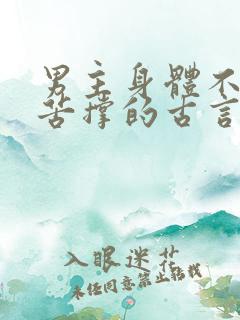 男主身體不
苦撐的古言
入眼迷花
未经同意禁止转载